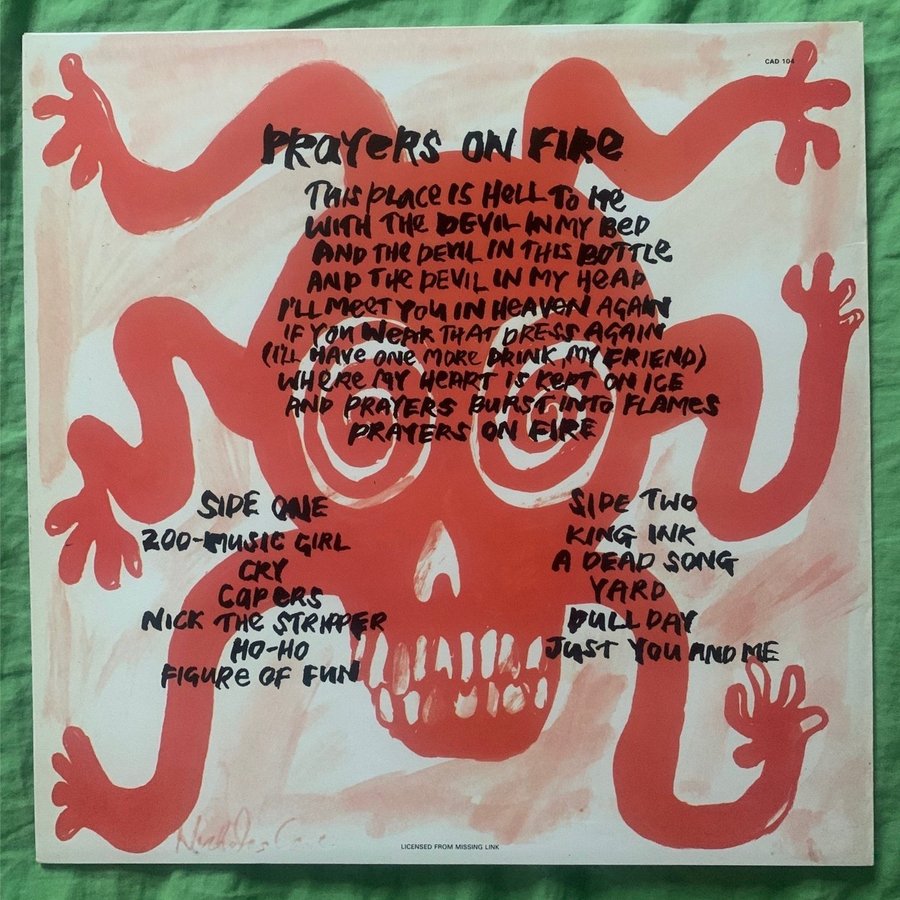 CAD 104
PRAYERS ON FIRE
THIS PLACE IS HELL TO ME
WITH THE DEVIL IN MY BED
AND THE DEVIL IN THIS BOTTLE
AND THE DEVIL IN MY HEAD
I'LL MEET YOU IN HEAVEN AGAIN
IF YOU WEAR THAT DRESS AGAIN
(I'LL HAVE ONE MORE DRINK, MY FRIEND)
WHERE MY HEART IS KEPT ON ICE
AND PRAYERS BURST INTO FLAMES
PRAYERS ON FIRE
SIDE ONE
ZOO-MUSIC GIRL
CRY
CAPERS
NICK THE STRIPPER
HO-HO
FIGURE OF FUN
SIDE TWO
KING INK
A DEAD SONG
YARD
DULL DAY
JUST YOU AND ME
Nicholas Cave
LICENSED FROM MISSING LINK